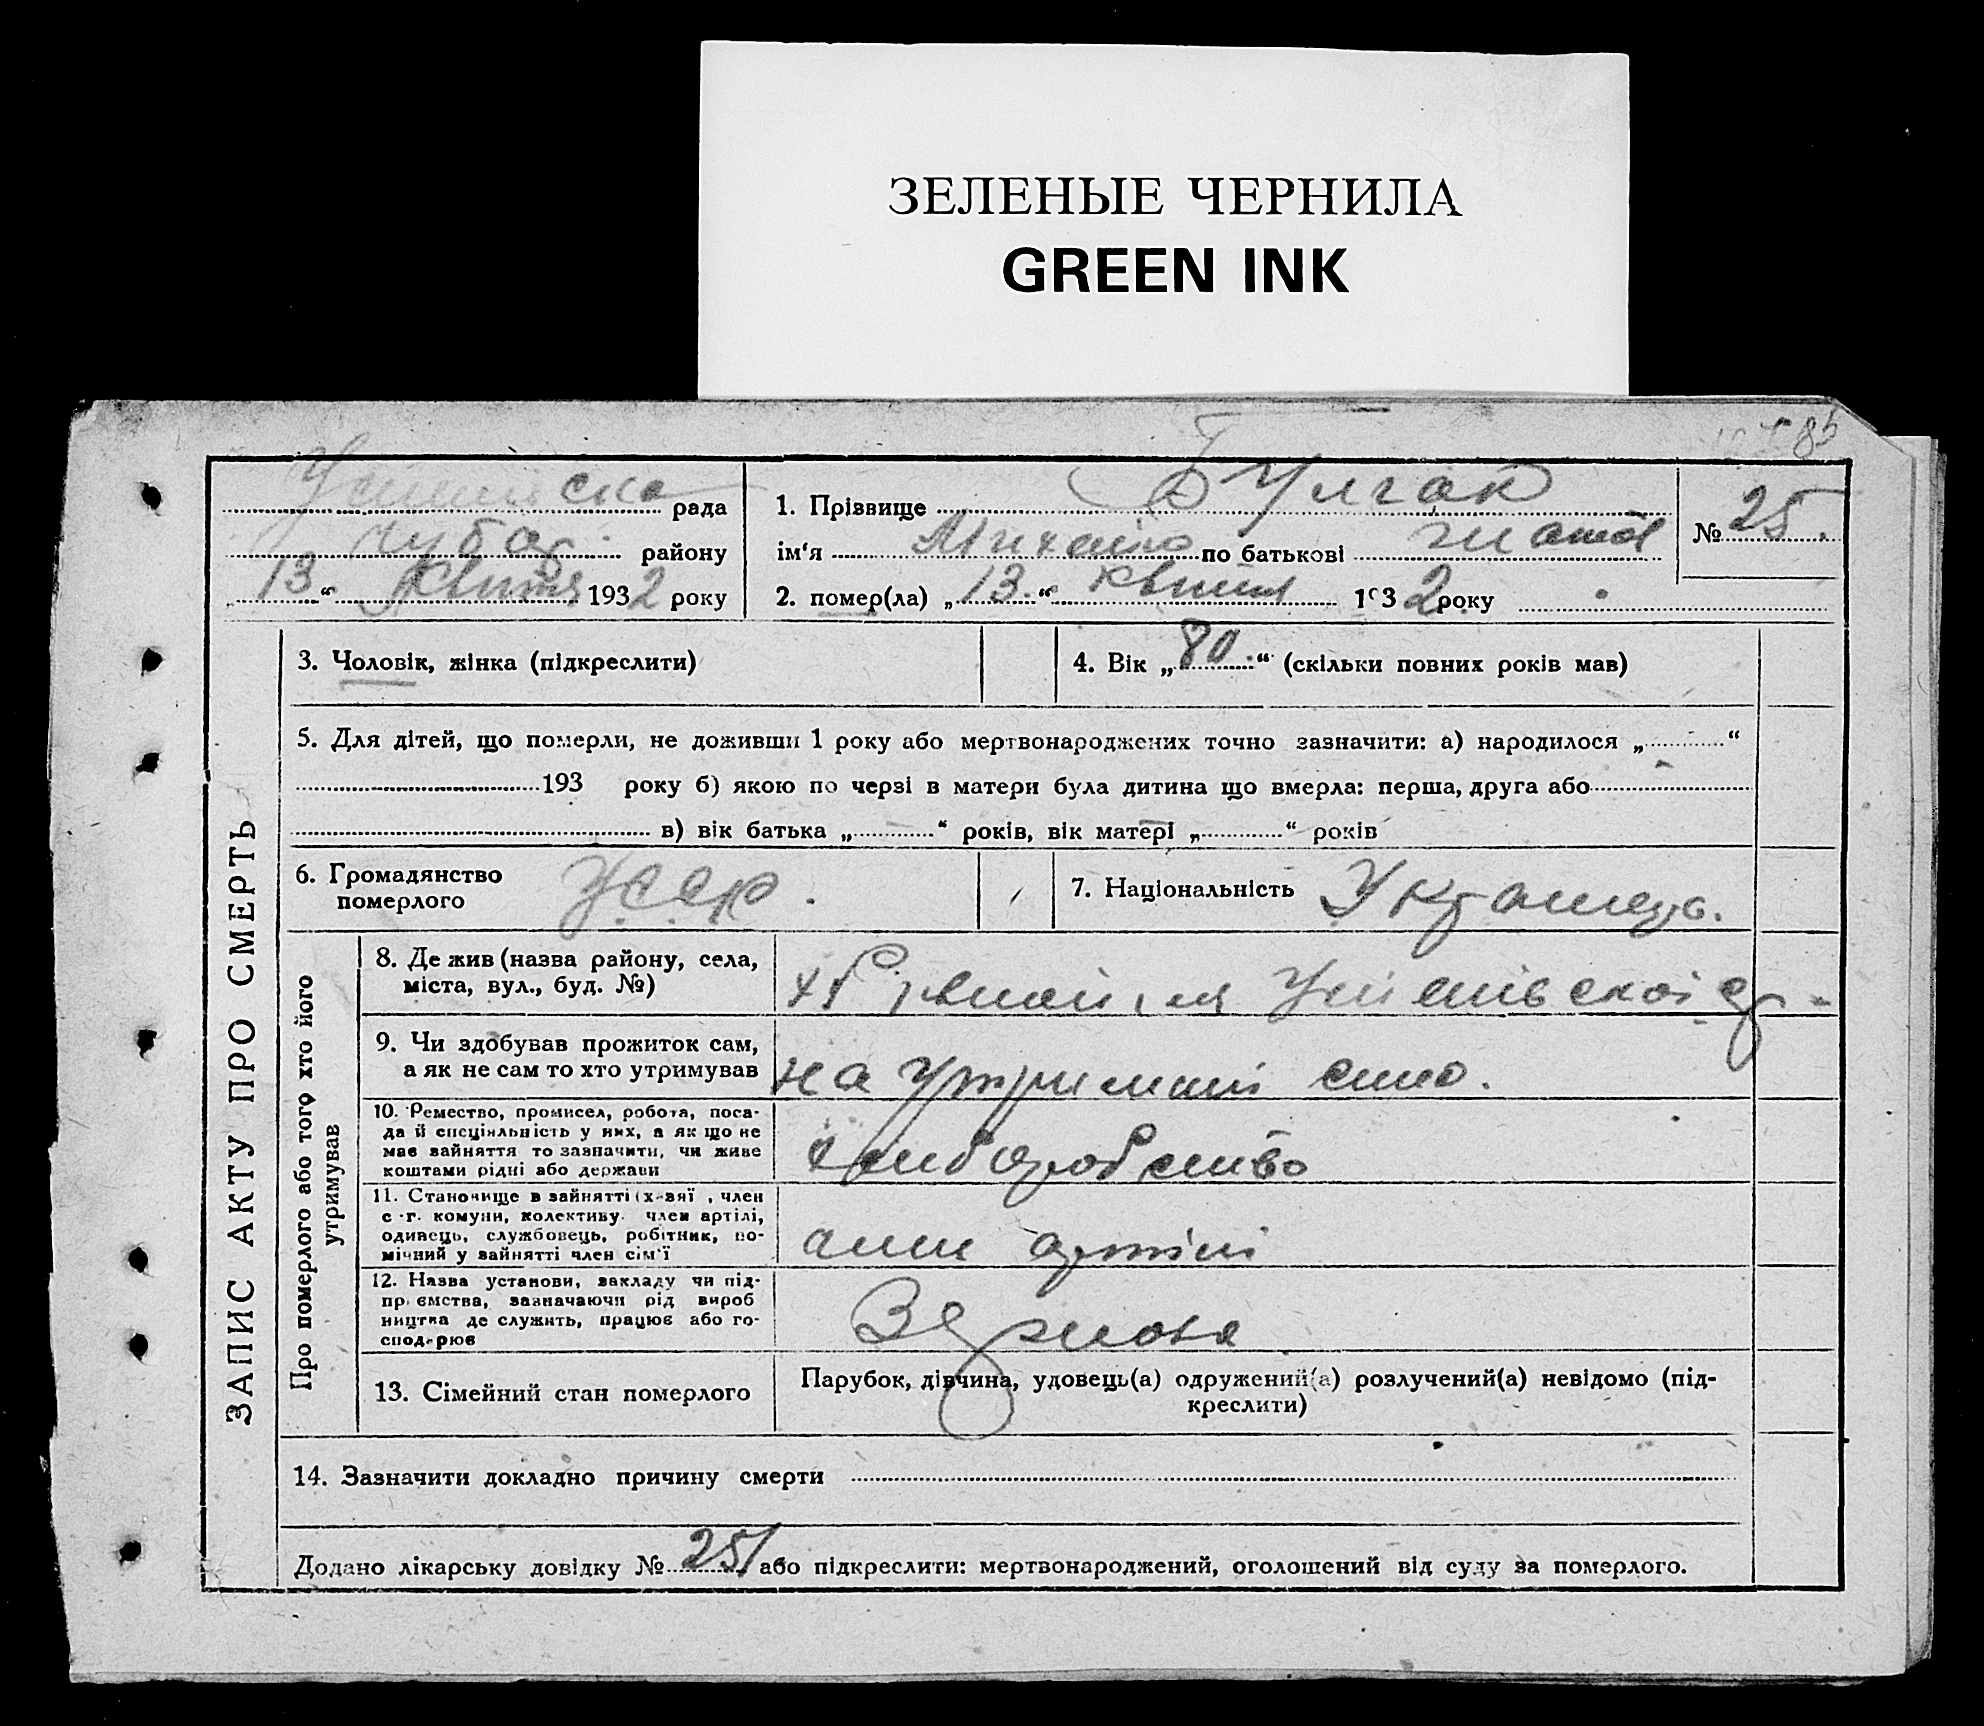 ЗЕЛЕНЫЕ ЧЕРНИЛА
GREEN INK
85
рада
Чубар. району
13. “ Квітня 1932 року
1. Прізвище Булгак
ім‘я Михайло по батькові
№ 25.
2. помер(ла) „ 13. “ Квітня 1932 року
ЗАПИС АКТУ ПРО СМЕРТЬ
3. Чоловік, жінка (підкреслити)
4. Вік „ 80. “ (скільки повних років мав)
5. Для дітей, що померли, не доживши 1 року або мертвонароджених точно зазначити: а) народилося „ “
193 року б) якою по черзі в матери була дитина що вмерла: перша, друга або
в) вік батька „ “ років, вік матері „ “ років
6. Громадянство
померлого
УССР.
7. Національність Українець.
Про померлого або того хто його
утримував
8. Де жив (назва району, села,
міста, вул., буд. №)
9. Чи здобував прожиток сам,
а як не сам то хто утримував
на утриманні сина.
10. Ремество, промисел, робота, поса-
да й спеціяльність у них, а як що не
має зайняття то зазначити, чи живе
коштами рідні або держави
хліборобство
11. Становище в зайнятті (х-вяї, член
с.-г. комуни, колективу член артілі,
одинець, службовець, робітник, по-
мічний у зайнятті член сім‘ї
член артілі
12. Назва установи, закладу чи під-
приємства, зазначаючи рід вироб
ництва де служить, працює або го-
сподарює
Зернова
13. Сімейний стан померлого
Парубок, дівчина, удовець(а) одружений(а) розлучений(а) невідомо (під-
креслити)
14. Зазначити докладно причину смерти
Додано лікарську довідку № 25/ або підкреслити: мертвонароджений, оголошений від суду за померлого.